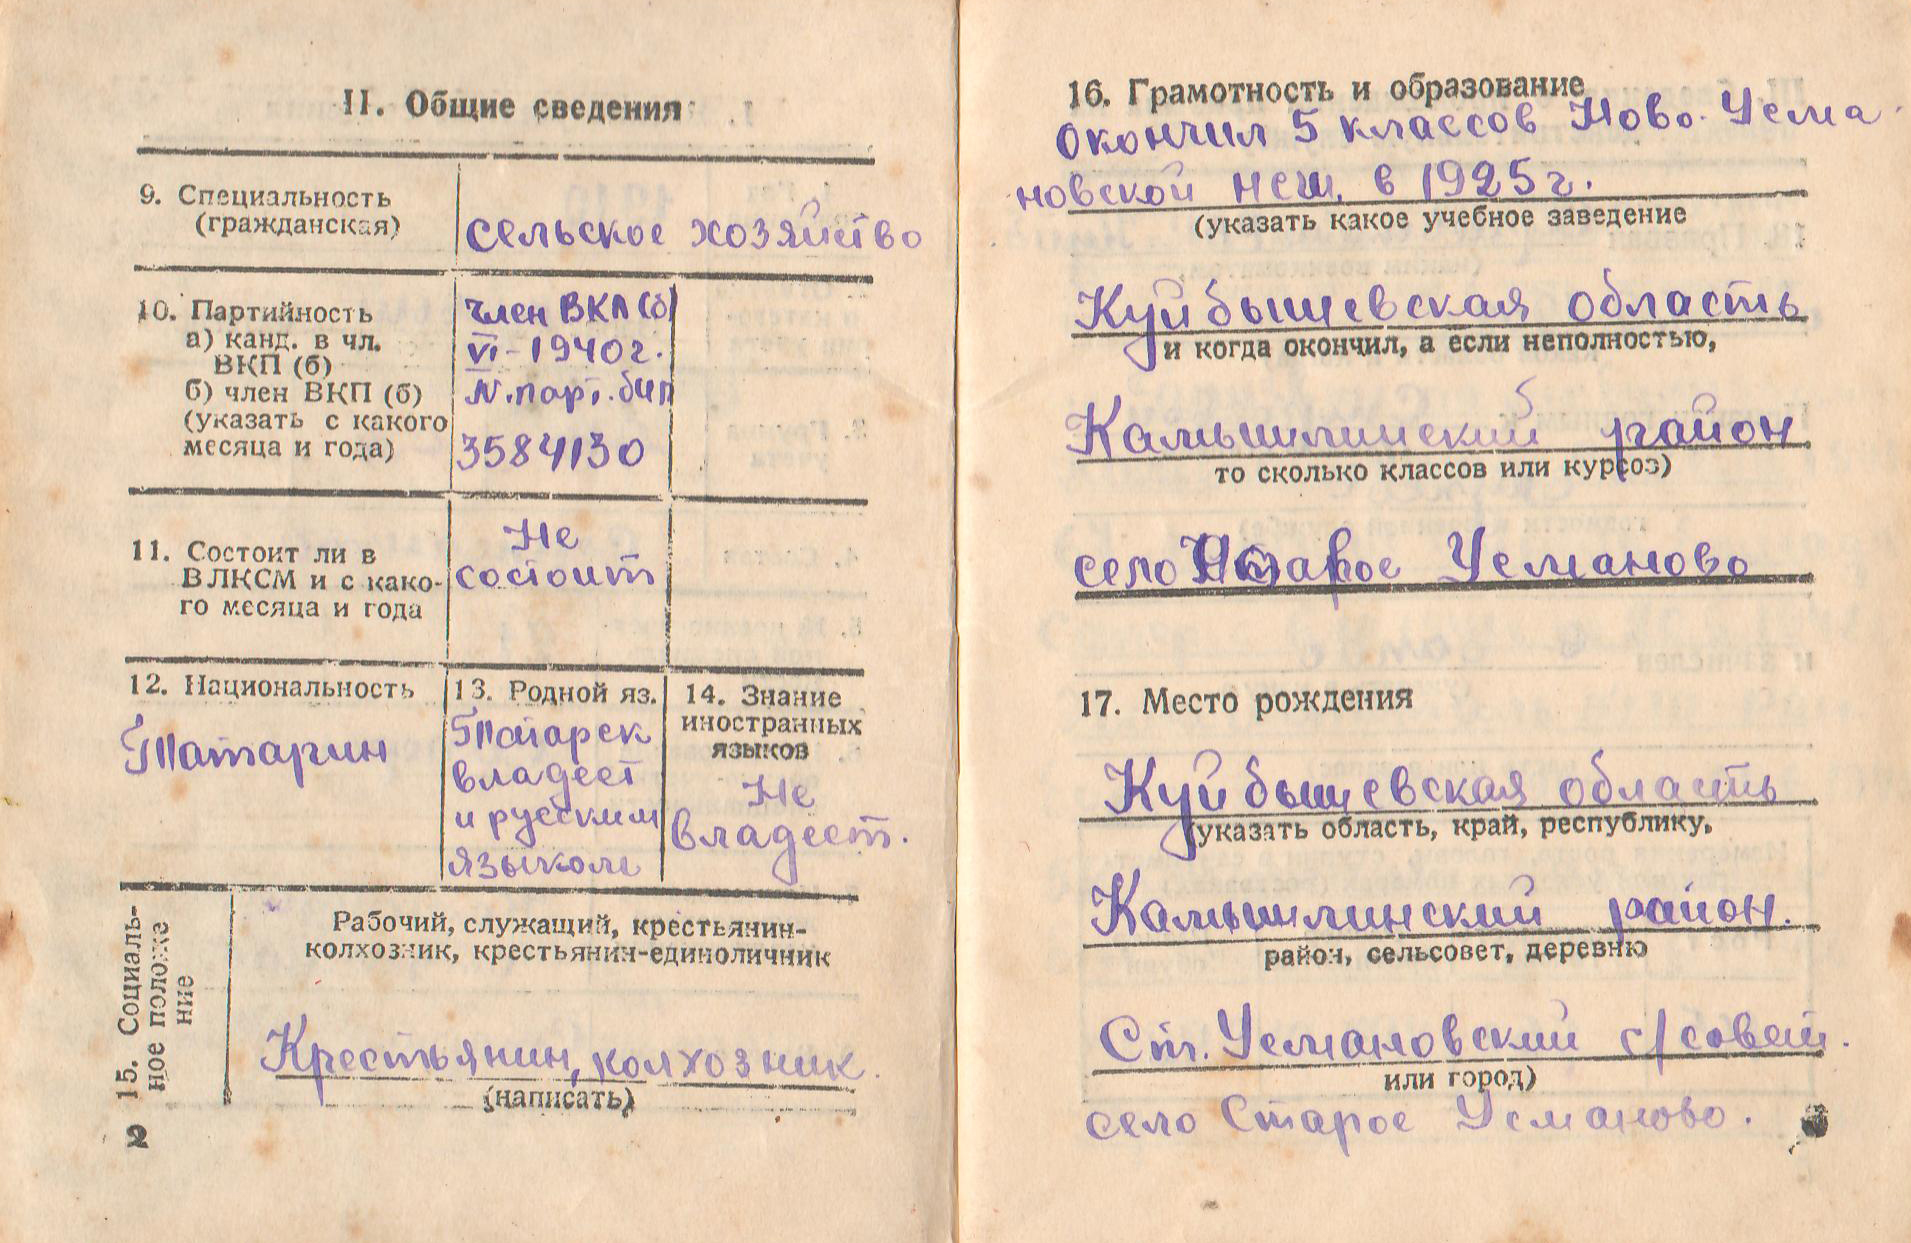 II. Общие сведения
9. Специальность
(гражданская)
сельское хозяйство
10. Партийность
а) канд. в чл.
ВКП (б)
б) член ВКП (б)
(указать с какого
месяца и года)
член ВКП(б)
VI-1940г.
N. парт. бил
3584130
11. Состоит ли в
ВЛКСМ и с како-
го месяца и года
Не
состоит
12. Национальность
Татарин
13. Родной яз.
Татарск
владеет
и русским
языком
14. Знание
иностранных
языков
Не
владеет.
15. Социаль-
ное положе
ние
Рабочий, служащий, крестьянин-
колхозник, крестьянин-единоличник
Крестьянин, колхозник.
(написать)
2
16. Грамотность и образование
окончил 5 классов Ново-Усма-
новской нсш. в 1925г.
(указать какое учебное заведение
Куйбышевская область
и когда окончил, а если неполностью,
Камышлинский район
то сколько классов или курсов)
село Старое Усманово
17. Место рождения
Куйбышевская область
указать область, край, республику,
Камышлинский район.
район, сельсовет, деревню
Ст. Усмановский с/совет.
или город)
село Старое Усманово.